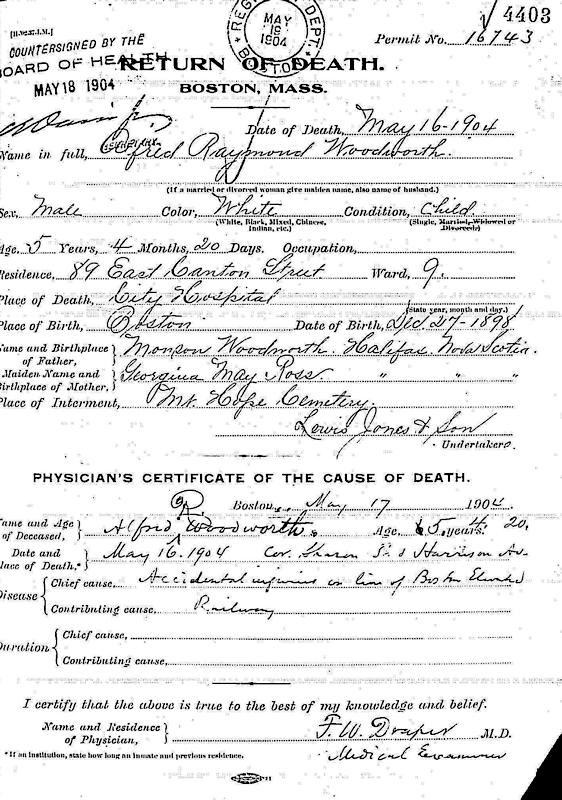 4403
[H.-'02-37.I.M.]
REGISTRY DEPT.
MAY
19
1904
BOSTON
Permit No. 16743
COUNTERSIGNED BY THE
BOARD OF HEALTH
MAY 18 1904
RETURN OF DEATH.
BOSTON, MASS.
Date of Death, May 16-1904
Name in full, Alfred Raymond Woodworth.
(If a married or divorced woman give maiden name, also name of husband.)
Sex, Male Color, White Condition, Child
(White, Black, Mixed, Chinese, Indian, etc.) (Single, Married, Widowed or Divorced.)
Age, 5 Years, 4 Months, 20 Days. Occupation,
Residence, 89 East Canton Street Ward, 9.
Place of Death, City Hospital
(State year, month and day.)
Place of Birth, Boston Date of Birth, Dec 27-1898
Name and Birthplace of Father, Monson Woodworth. Halifax. Nova Scotia.
Maiden Name and Birthplace of Mother, Georgina May Ross " " "
Place of Interment, Mt. Hope Cemetery.
Lewis Jones & Son
Undertakers.
PHYSICIAN'S CERTIFICATE OF THE CAUSE OF DEATH.
Boston, May 17 1904.
Name and Age of Deceased, Alfred R. Woodworth. Age, 5 years. 4 20.
Date and Place of Death,* May 16. 1904 Cor. Sharon St. & Harrison Av.
Disease Chief cause, Accidental injuries on line of Boston Elevated
Contributing cause, Railway
Duration Chief cause,
Contributing cause,
I certify that the above is true to the best of my knowledge and belief.
Name and Residence of Physician, F. W. Draper M.D.
*If an institution, state how long an inmate and previous residence. Medical Examiner